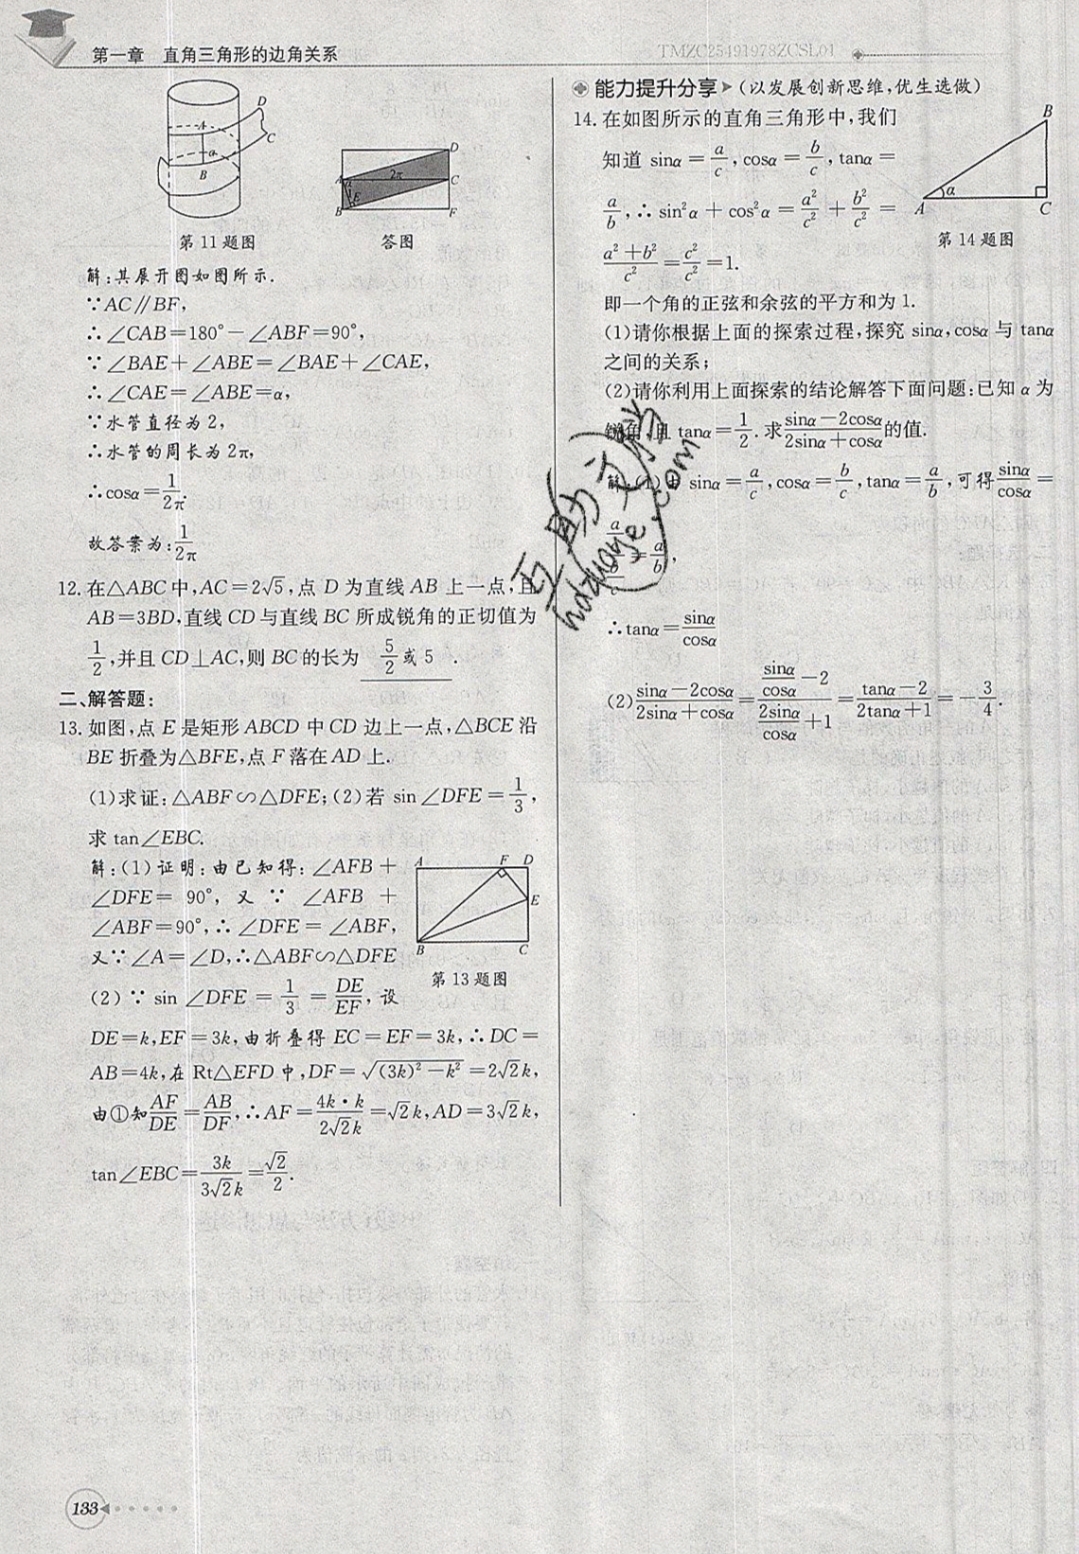 第一章 直角三角形的边角关系
TMZC25491978ZCSL01
D
A
C
α
B
第11题图
D
A
2π
C
1
E
B
F
答图
解:其展开图如图所示.
∵AC∥BF,
∴∠CAB=180°-∠ABF=90°,
∵∠BAE+∠ABE=∠BAE+∠CAE,
∴∠CAE=∠ABE=α,
∵水管直径为2,
∴水管的周长为2π,
∴cosα=1/2π.
故答案为:1/2π
12.在△ABC中,AC=2√5,点 D 为直线 AB 上一点,且
AB=3BD,直线CD与直线 BC 所成锐角的正切值为
1/2,并且 CD⊥AC,则 BC的长为 5/2或5 .
二、解答题:
13.如图,点 E 是矩形 ABCD 中 CD 边上一点,△BCE 沿
BE 折叠为△BFE,点 F 落在 AD 上.
(1)求证:△ABF∽△DFE;(2)若 sin∠DFE=1/3,
求 tan∠EBC.
解:(1)证明:由已知得:∠AFB+
∠DFE=90°,又∵∠AFB+
∠ABF=90°,∴∠DFE=∠ABF,
又∵∠A=∠D,∴△ABF∽△DFE
A F D
E
B C
第13题图
(2)∵sin∠DFE=1/3=DE/EF,设
DE=k,EF=3k,由折叠得 EC=EF=3k,∴DC=
AB=4k,在 Rt△EFD 中,DF=√(3k)²-k²=2√2k,
由①知AF/DE=AB/DF,∴AF=4k·k/2√2k=√2k,AD=3√2k,
tan∠EBC=3k/3√2k=√2/2.
133
能力提升分享(以发展创新思维,优生选做)
14.在如图所示的直角三角形中,我们
知道 sinα=a/c,cosα=b/c,tanα=
a/b,∴sin²α+cos²α=a²/c²+b²/c²=
a²+b²/c²=c²/c²=1.
B
A α C
第14题图
即一个角的正弦和余弦的平方和为1.
(1)请你根据上面的探索过程,探究 sinα,cosα 与 tanα
之间的关系;
(2)请你利用上面探索的结论解答下面问题:已知 α 为
锐角,且 tanα=1/2.求sinα-2cosα/2sinα+cosα的值.
解:(1)由 sinα=a/c,cosα=b/c,tanα=a/b,可得sinα/cosα=
a/c/b/c=a/b,
∴tanα=sinα/cosα
(2)sinα-2cosα/2sinα+cosα=sinα/cosα-2/2sinα/cosα+1=tanα-2/2tanα+1=-3/4.
互助文学
hdzuoye.com